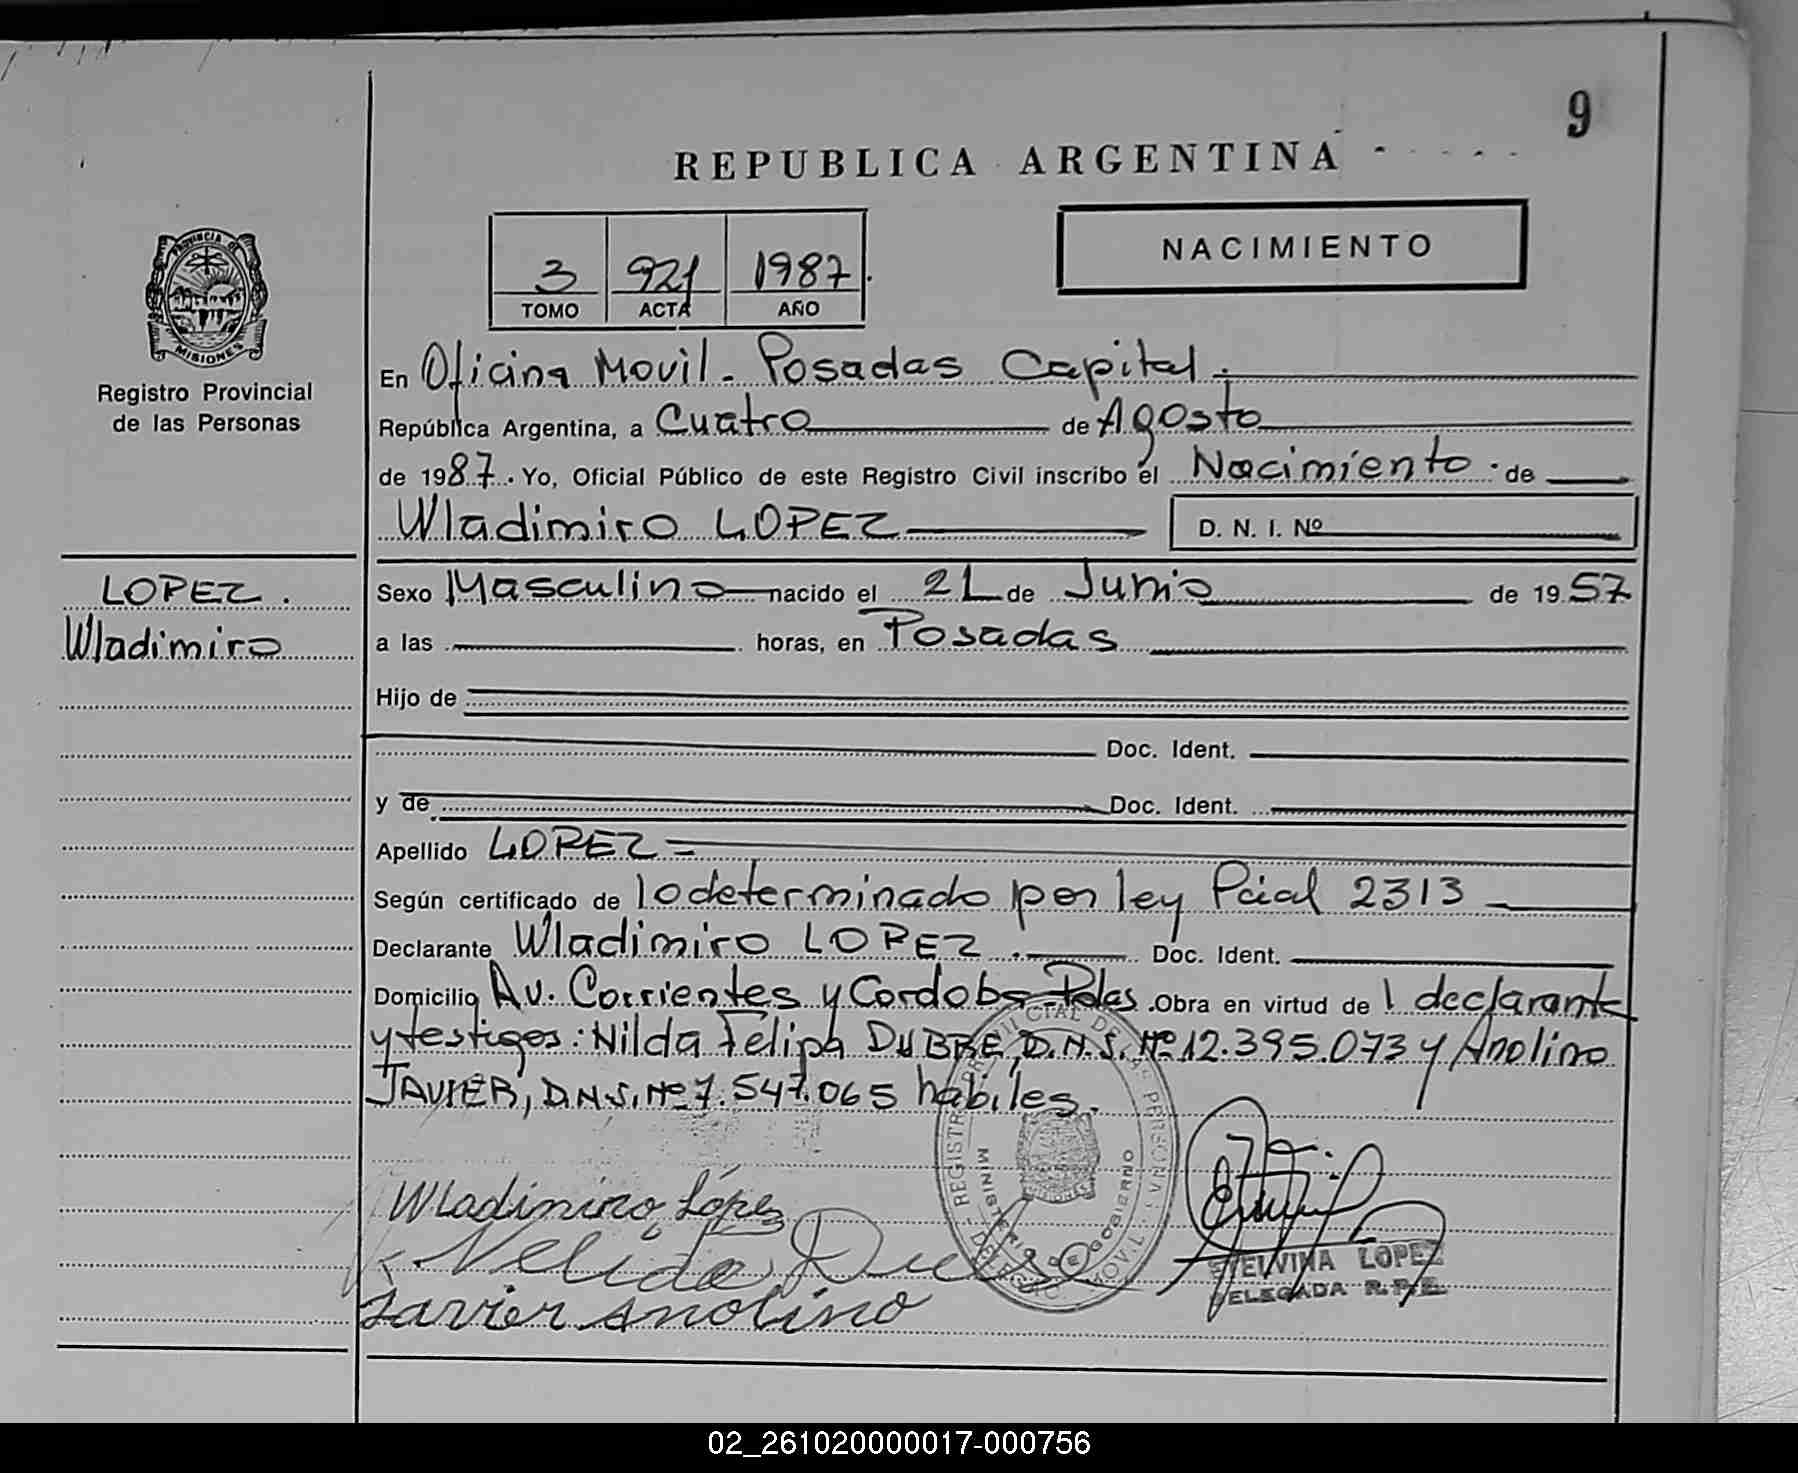 9
REPUBLICA ARGENTINA
3 921 1987
TOMO ACTA AÑO
NACIMIENTO
PROVINCIA DE
MISIONES
Registro Provincial
de las Personas
LOPEZ.
Wladimiro
En Oficina Movil - Posadas Capital.
República Argentina, a Cuatro de Agosto
de 1987. Yo, Oficial Público de este Registro Civil inscribo el Nacimiento de
Wladimiro LOPEZ D. N. I. Nº
Sexo Masculino nacido el 21 de Junio de 1957
a las horas, en Posadas
Hijo de
Doc. Ident.
y de Doc. Ident.
Apellido LOPEZ =
Según certificado de lo determinado por ley Pcial 2313
Declarante Wladimiro LOPEZ. Doc. Ident.
Domicilio Av. Corrientes y Cordoba - Pdas. Obra en virtud de l declarante
y testigos: Nilda Felipa DUBRE, D.N.I. Nº 12.395.073 y Anolino
JAVIER, D.N.I. Nº 7.547.065 habiles.
MINISTERIO DE GOBIERNO
Wladimiro López
Nelida
Javier Anolino
ETELVINA LOPEZ
DELEGADA R.P.P.
02_261020000017-000756